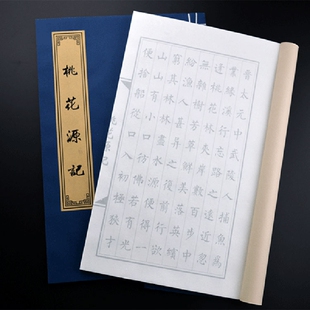 桃花源記
晉太元中武陵人捕魚為
業緣溪行忘路之遠近忽
逢桃花林夾岸數百步中
無雜樹芳草鮮美落英繽
紛漁人甚異之復前行欲
窮其林林盡水源便得一
山山有小口彷彿若有光
便捨船從口入初極狹才
桃花源記